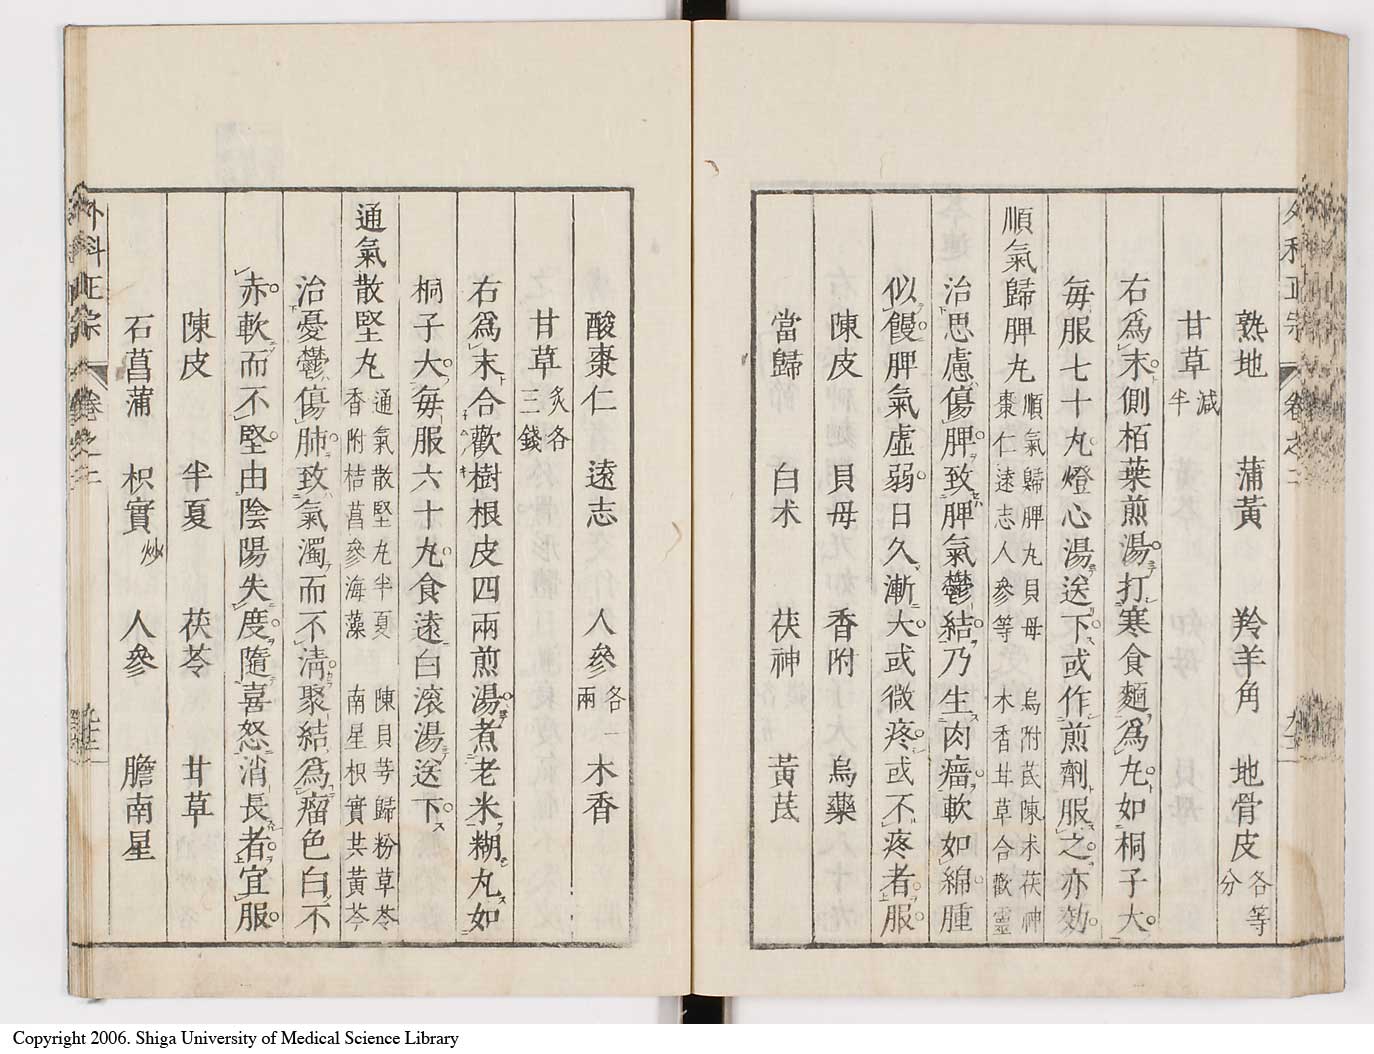 熟地　蒲黃　羚羊角　地骨皮各等分
甘草減半
右爲末側栢葉煎湯打寒食麵爲丸如桐子大
毎服七十丸燈心湯送下或作煎劑服之亦効
順氣歸脾丸
順氣歸脾丸貝母　烏附芪陳术茯神
棗仁遠志人參等　木香甘草合歡靈
治思慮傷脾致脾氣鬱結乃生肉瘤軟如綿腫
似饅脾氣虛弱日久漸大或微疼或不疼者服
陳皮　貝母　香附　烏藥
當歸　白术　茯神　黃芪
外科正宗　卷之二
酸棗仁　遠志　人參各一兩　木香
甘草炙各三錢
右爲末合歡樹根皮四兩煎湯煮老米糊丸如
桐子大毎服六十丸食遠白滚湯送下
通氣散堅丸
通氣散堅丸半夏　陳貝芎歸粉草苓
香附桔菖參海藻　南星枳實共黃芩
治憂鬱傷肺致氣濁而不清聚結爲瘤色白不
赤軟而不堅由陰陽失度隨喜怒消長者宜服
陳皮　半夏　茯苓　甘草
石菖蒲　枳實炒　人參　膽南星
外科正宗　卷之二
Copyright 2006. Shiga University of Medical Science Library